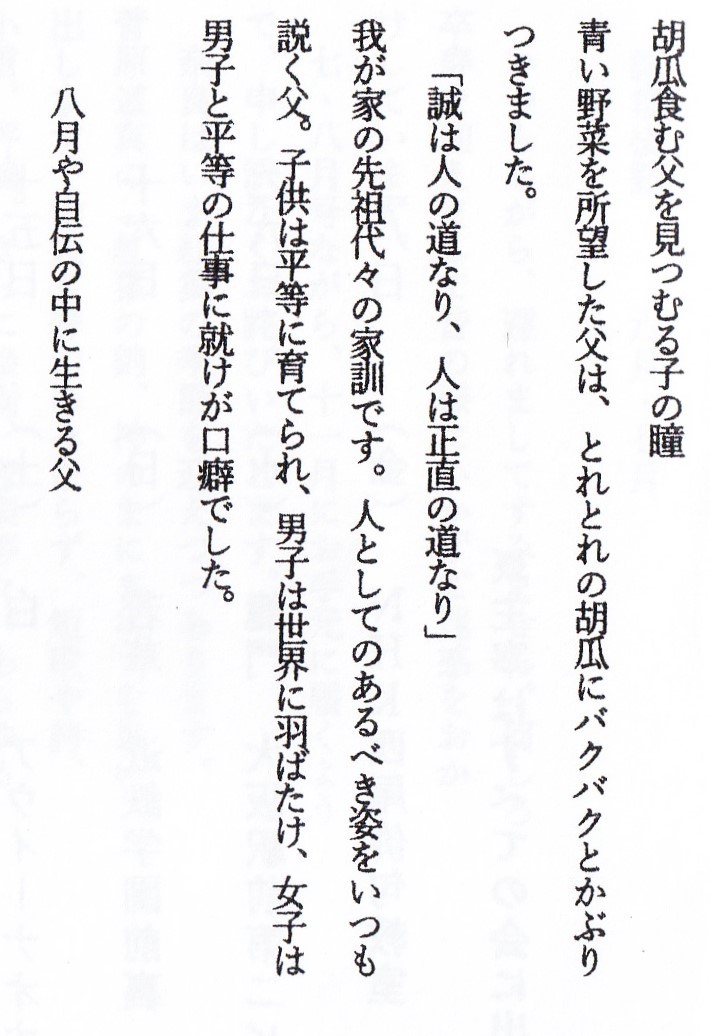 胡瓜食む父を見つむる子の瞳
青い野菜を所望した父は、とれとれの胡瓜にバクバクとかぶり
つきました。
「誠は人の道なり、人は正直の道なり」
我が家の先祖代々の家訓です。人としてのあるべき姿をいつも
説く父。子供は平等に育てられ、男子は世界に羽ばたけ、女子は
男子と平等の仕事に就けが口癖でした。
八月や自伝の中に生きる父